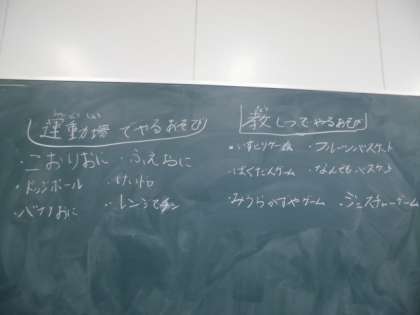 運動場でやるあそび
・こおりおに ・ふえおに
・ドッジボール ・けいドロ
・バナナおに ・レンジでチン
教しつでやるあそび
・いすとりゲーム ・フルーツバスケット
・ばくだんゲーム ・なんでもバスケット
・ジェスチャーゲーム